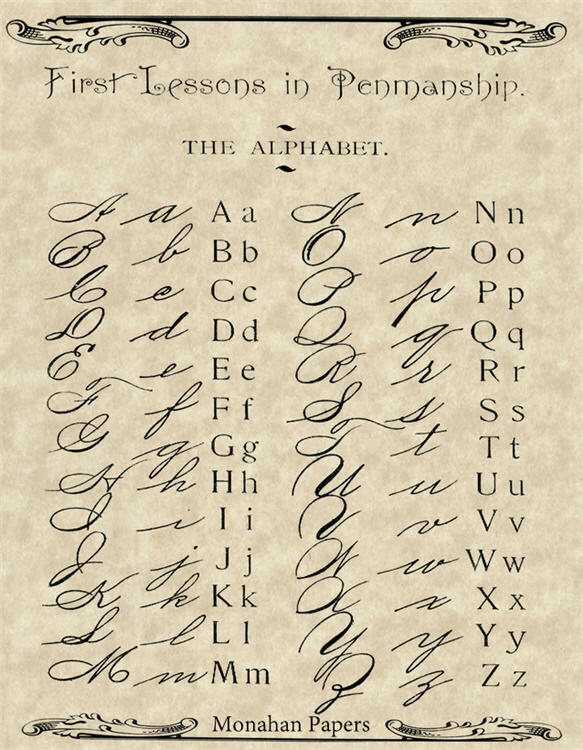 First Lessons in Penmanship.
THE ALPHABET.
A a A a N n N n
B b B b O o O o
C c C c P p P p
D d D d Q q Q q
E e E e R r R r
F f F f S s S s
G g G g T t T t
H h H h U u U u
I i I i V v V v
J j J j W w W w
K k K k X x X x
L l L l Y y Y y
M m M m Z z Z z
Monahan Papers